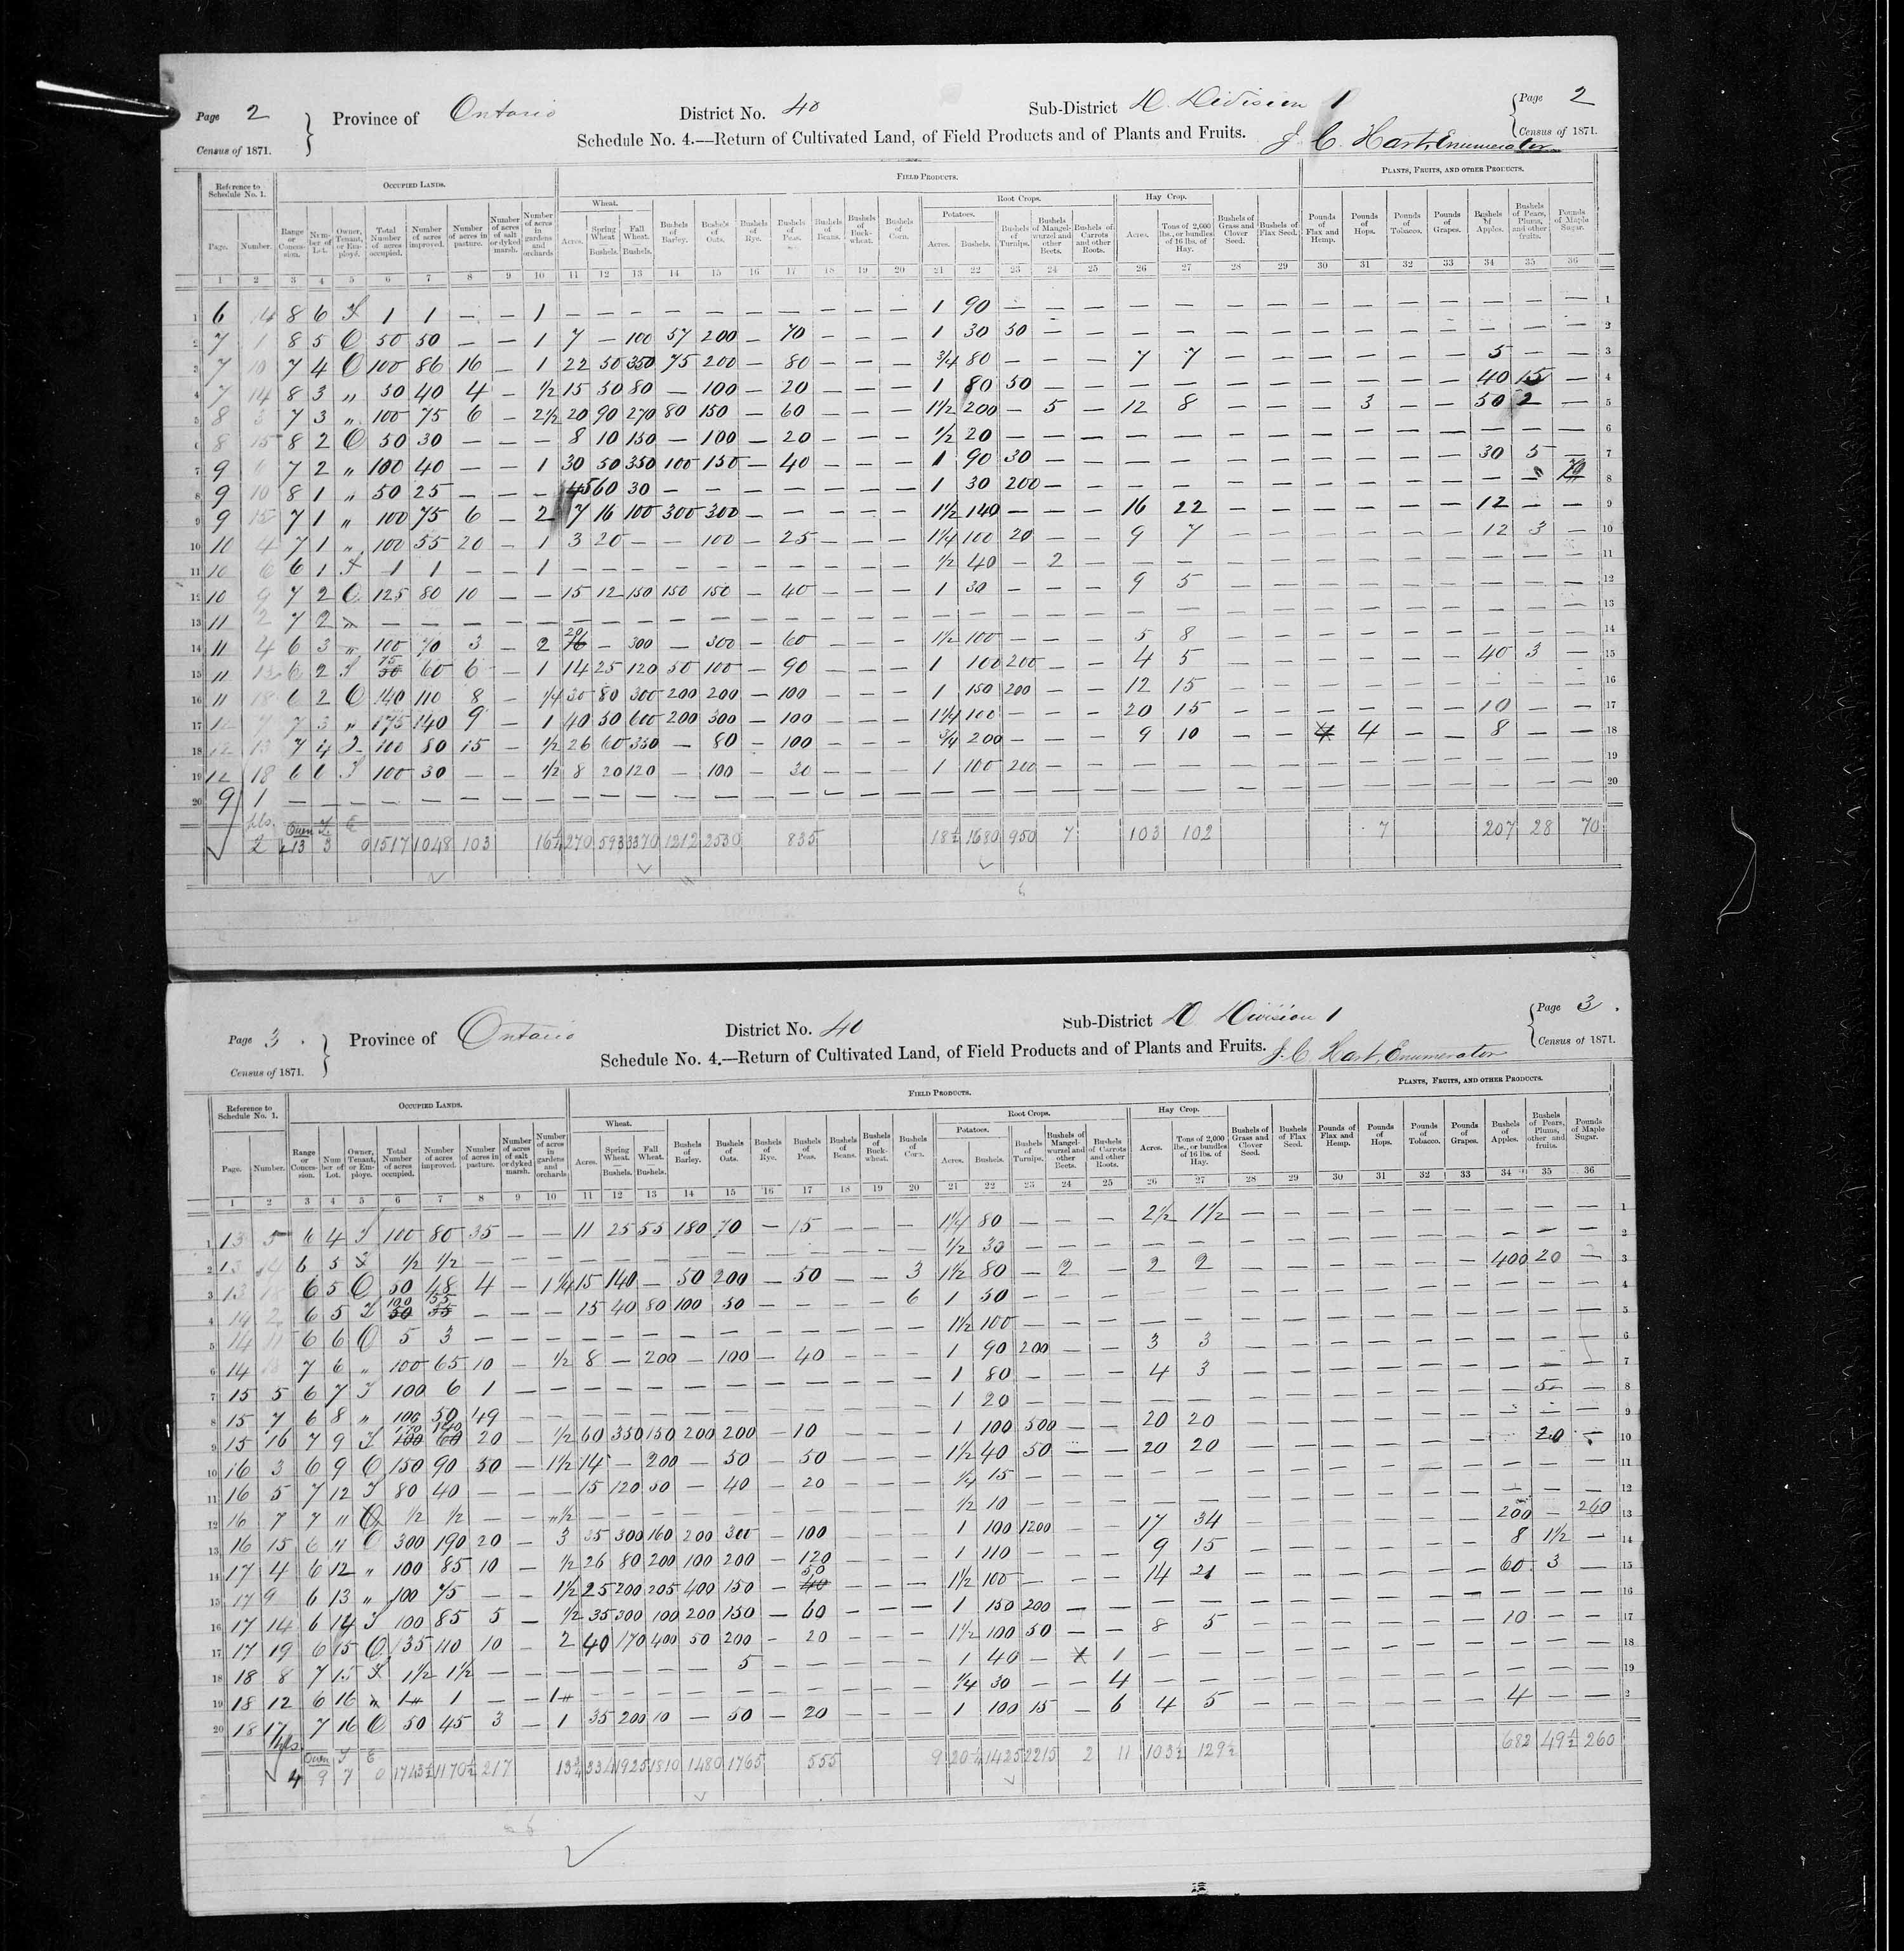 Page 2 Province of Ontario District No. 40 Sub-District D. Division 1 Page 2
Census of 1871. Schedule No. 4.—Return of Cultivated Land, of Field Products and of Plants and Fruits. J. C. Hart, Enumerator Census of 1871.
Reference to Schedule No. 1. OCCUPIED LANDS. FIELD PRODUCTS. PLANTS, FRUITS, AND OTHER PRODUCTS.
Wheat. Root Crops. Potatoes. Hay Crop.
Page. Number. Range or Concession. Number of Lot. Owner, Tenant, or Employé. Total Number of acres occupied. Number of acres improved. Number of acres in pasture. Number of acres of salt or dyked marsh. Number of acres in gardens and orchards Acres. Spring Wheat — Bushels. Fall Wheat. — Bushels. Bushels of Barley. Bushels of Oats. Bushels of Rye. Bushels of Peas. Bushels of Beans. Bushels of Buckwheat. Bushels of Corn. Acres. Bushels. Bushels of Turnips. Bushels of Mangel-wurzel and other Beets. Bushels of Carrots and other Roots. Acres. Tons of 2,000 lbs., or bundles of 16 lbs. of Hay. Bushels of Grass and Clover Seed. Bushels of Flax Seed. Pounds of Flax and Hemp. Pounds of Hops. Pounds of Tobacco. Pounds of Grapes. Bushels of Apples. Bushels of Pears, Plums, and other fruits. Pounds of Maple Sugar.
1 2 3 4 5 6 7 8 9 10 11 12 13 14 15 16 17 18 19 20 21 22 23 24 25 26 27 28 29 30 31 32 33 34 35 36
1 6 14 8 6 T 1 1 — — 1 — — — — — — — — — — 1 90 — — — — — — — — — — — — — — 1
2 7 1 8 5 O 50 50 — — 1 7 — 100 57 200 — 70 — — — 1 30 50 — — — — — — — — — — — — — 2
3 7 10 7 4 O 100 86 16 — 1 22 50 350 75 200 — 80 — — — 3/4 80 — — — 7 7 — — — — — — 5 — — 3
4 7 14 8 3 " 50 40 4 — 1/2 15 50 80 — 100 — 20 — — — 1 80 50 — — — — — — — — — — 40 15 — 4
5 8 3 7 3 " 100 75 6 — 2 1/2 20 90 270 80 150 — 60 — — — 1 1/2 200 — 5 — 12 8 — — — 3 — — 50 2 — 5
6 8 15 8 2 O 50 30 — — — 8 10 130 — 100 — 20 — — — 1/2 20 — — — — — — — — — — — — — — 6
7 9 6 7 2 " 100 40 — — 1 30 50 350 100 150 — 40 — — — 1 90 30 — — — — — — — — — — 30 5 — 7
8 9 10 8 1 " 50 25 — — — 4 5 60 30 — — — — — — — 1 30 200 — — — — — — — — — — — — 70 8
9 9 15 7 1 " 100 75 6 — 2 7 16 100 300 300 — — — — — 1 1/2 140 — — — 16 22 — — — — — — 12 — — 9
10 10 4 7 1 " 100 55 20 — 1 3 20 — — 100 — 25 — — — 1 1/4 100 20 — — 9 7 — — — — — — 12 3 — 10
11 10 6 6 1 T 1 1 — — 1 — — — — — — — — — — 1/2 40 — 2 — — — — — — — — — — — — 11
12 10 9 7 2 O 125 80 10 — — 15 12 150 150 150 — 40 — — — 1 30 — — — 9 5 — — — — — — — — — 12
13 11 2 7 2 " — — — — — — — — — — — — — — — — — — — — — — — — — — — — — — — 13
14 11 4 6 3 " 100 70 3 — 2 20 — 300 — 300 — 60 — — — 1 1/2 100 — — — 5 8 — — — — — — — — — 14
15 11 13 6 2 T 75 60 6 — 1 14 25 120 50 100 — 90 — — — 1 100 200 — — 4 5 — — — — — — 40 3 — 15
16 11 18 6 2 O 140 110 8 — 1/4 30 80 300 200 200 — 100 — — — 1 150 200 — — 12 15 — — — — — — — — — 16
17 12 7 7 3 " 175 140 9 — 1 40 50 600 200 300 — 100 — — — 1 1/4 100 — — — 20 15 — — — — — — 10 — — 17
18 12 13 7 4 T 100 80 15 — 1/2 26 60 350 — 80 — 100 — — — 3/4 200 — — — 9 10 — — 4 4 — — 8 — — 18
19 12 18 6 6 T 100 30 — — 1/2 8 20 120 — 100 — 30 — — — 1 100 200 — — — — — — — — — — — — — 19
20 9 1 — — — — — — — — — — — — — — — — — — — — — — — — — — — — — — — — — — 20
hls. 2 Own 13 T 3 E 0 1517 1048 103 16 1/4 270 593 3370 1212 2530 835 18 1/2 1680 950 7 103 102 7 207 28 70
Page 3. Province of Ontario District No. 40 Sub-District D Division 1 Page 3.
Census of 1871. Schedule No. 4.—Return of Cultivated Land, of Field Products and of Plants and Fruits. J. C. Hart, Enumerator Census of 1871.
Reference to Schedule No. 1. OCCUPIED LANDS. FIELD PRODUCTS. PLANTS, FRUITS, AND OTHER PRODUCTS.
Wheat. Root Crops. Potatoes. Hay Crop.
Page. Number. Range or Concession. Number of Lot. Owner, Tenant, or Employe. Total Number of acres occupied. Number of acres improved. Number of acres in pasture. Number of acres of salt or dyked marsh. Number of acres in gardens and orchards Acres. Spring Wheat. — Bushels. Fall Wheat. — Bushels. Bushels of Barley. Bushels of Oats. Bushels of Rye. Bushels of Peas. Bushels of Beans. Bushels of Buckwheat. Bushels of Corn. Acres. Bushels. Bushels of Turnips. Bushels of Mangel-wurzel and other Beets. Bushels of Carrots and other Roots. Acres. Tons of 2,000 lbs., or bundles of 16 lbs. of Hay. Bushels of Grass and Clover Seed. Bushels of Flax Seed. Pounds of Flax and Hemp. Pounds of Hops. Pounds of Tobacco. Pounds of Grapes. Bushels of Apples. Bushels of Pears, Plums, other and fruits. Pounds of Maple Sugar.
1 2 3 4 5 6 7 8 9 10 11 12 13 14 15 16 17 18 19 20 21 22 23 24 25 26 27 28 29 30 31 32 33 34 35 36
1 13 5 6 4 T 100 80 35 — — 11 25 55 180 70 — 15 — — — 1 1/4 80 — — — 2 1/2 1 1/2 — — — — — — — — — 1
2 13 14 6 5 T 1/2 1/2 — — — — — — — — — — — — — 1/2 30 — — — — — — — — — — — — — — 2
3 13 18 6 5 O 50 48 4 — 1 1/4 15 140 — 50 200 — 50 — — 3 1 1/2 80 — 2 — 2 2 — — — — — — 400 20 — 3
4 14 2 6 5 T 100 55 — — — 15 40 80 100 50 — — — — 6 1 50 — — — — — — — — — — — — — — 4
5 14 11 6 6 O 5 3 — — — — — — — — — — — — — 1 1/2 100 — — — — — — — — — — — — — — 5
6 14 18 7 6 " 100 65 10 — 1/2 8 — 200 — 100 — 40 — — — 1 90 200 — — 3 3 — — — — — — — — — 6
7 15 5 6 7 T 100 6 1 — — — — — — — — — — — — 1 80 — — — 4 3 — — — — — — — — — 7
8 15 7 6 8 " 100 50 49 — — — — — — — — — — — — 1 20 — — — — — — — — — — — — 5 — 8
9 15 16 7 9 T 170 140 20 — 1/2 60 350 150 200 200 — 10 — — — 1 100 500 — — 20 20 — — — — — — — — — 9
10 16 3 6 9 O 150 90 50 — 1 1/2 14 — 200 — 50 — 50 — — — 1 1/2 40 50 — — 20 20 — — — — — — — 20 — 10
11 16 5 7 12 T 80 40 — — — 15 120 50 — 40 — 20 — — — 1/4 15 — — — — — — — — — — — — — — 11
12 16 7 7 " O 1/2 1/2 — — 1/2 — — — — — — — — — — 1/2 10 — — — — — — — — — — — — — — 12
13 16 15 6 " O 300 190 20 — 3 35 300 160 200 300 — 100 — — — 1 100 1200 — — 17 34 — — — — — — 200 — 260 13
14 17 4 6 12 " 100 85 10 — 1/2 26 80 200 100 200 — 120 — — — 1 110 — — — 9 15 — — — — — — 8 1 1/2 — 14
15 17 9 6 13 " 100 75 — — 1 1/2 25 200 205 400 150 — 50 — — — 1 1/2 100 — — — 14 21 — — — — — — 60 3 — 15
16 17 14 6 14 T 100 85 5 — 1/2 35 300 100 200 150 — 60 — — — 1 150 200 — — — — — — — — — — — — — 16
17 17 19 6 15 O 135 110 10 — 2 40 170 400 50 200 — 20 — — — 1 1/2 100 50 — — 8 5 — — — — — — 10 — — 17
18 18 8 7 15 T 1 1/2 1 1/2 — — — — — — — 5 — — — — — 1 40 — — 1 — — — — — — — — — — — 18
19 18 12 6 16 " 1 1 — — 1 — — — — — — — — — — 1/4 30 — — 4 — — — — — — — — — — — 19
20 18 17 7 16 O 50 45 3 — 1 35 200 10 — 50 — 20 — — — 1 100 15 — 6 4 5 — — — — — — 4 — — 2
hls. 4 Own 9 T 7 E 0 1743 1/2 1170 1/2 217 13 3/4 334 1925 1810 1480 1765 555 9 20 1/2 1425 2215 2 11 103 1/2 129 1/2 682 49 1/2 260